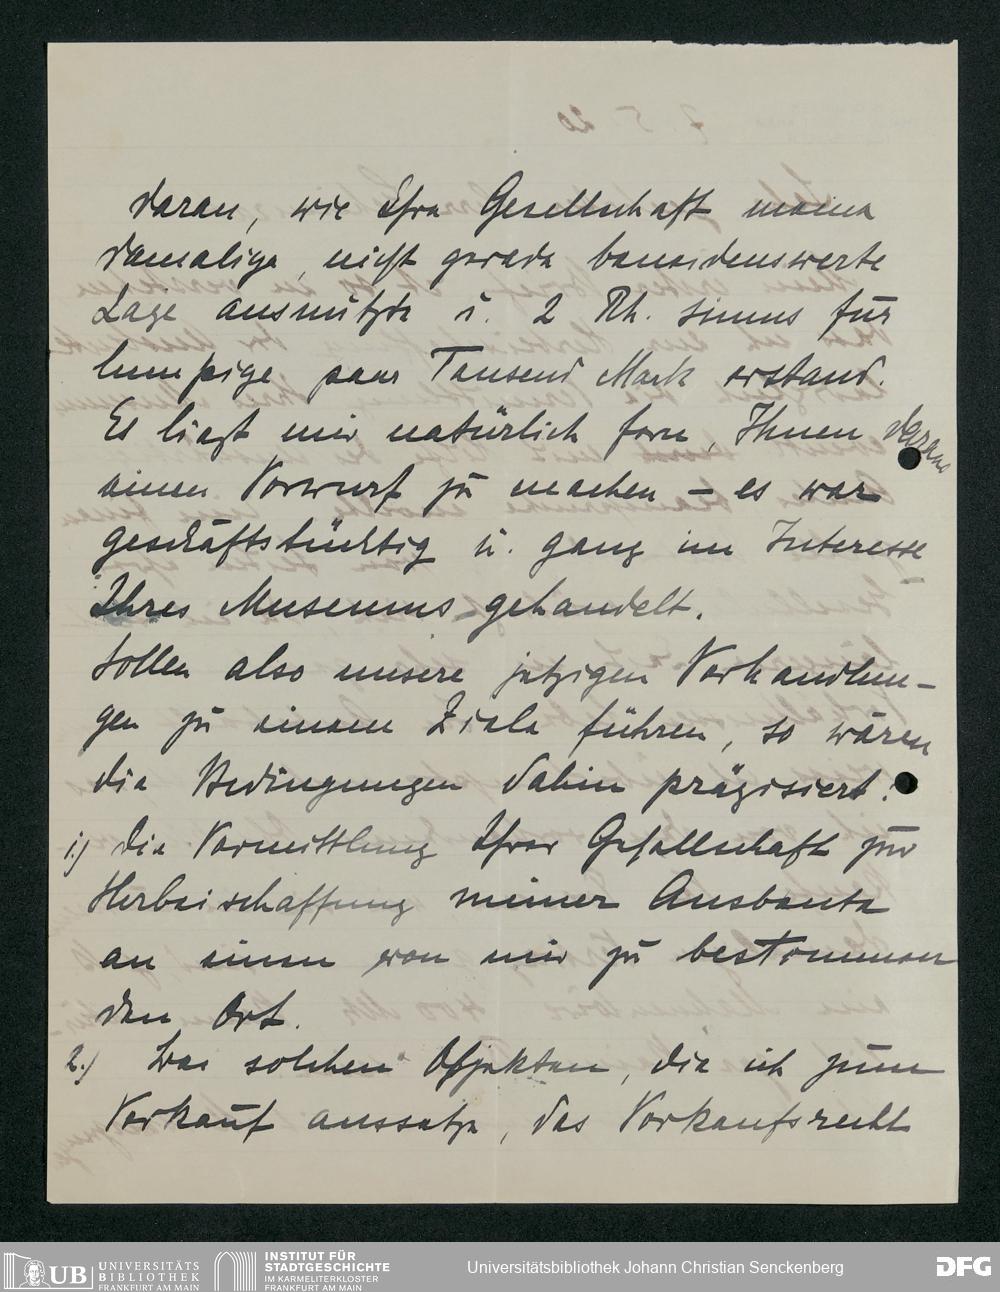 daran, wie Ihre Gesellschaft meine
damalige, nicht gerade beneidenswerte
Lage ausnützte u. 2 Rh. simus für
lumpige paar Tausend Mark erstand.
Es liegt mir natürlich fern, Ihnen daraus
einen Vorwurf zu machen – es war
geschäftstüchtig u. ganz im Interesse
Ihres Museums gehandelt.
Sollen also unsere jetzigen Verhandlun-
gen zu einem Ziele führen, so wären
die Bedingungen dahin präzisiert:
1.) Die Vermittlung Ihrer Gesellschaft zur
Herbeischaffung meiner Ausbeute
an einen von mir zu bestimmen
den Ort.
2.) bei solchen Objekten, die ich zum
Verkauf aussetze, das Vorkaufsrecht
UB UNIVERSITÄTS
BIBLIOTHEK
FRANKFURT AM MAIN
INSTITUT FÜR
STADTGESCHICHTE
IM KARMELITERKLOSTER
FRANKFURT AM MAIN
Universitätsbibliothek Johann Christian Senckenberg
DFG